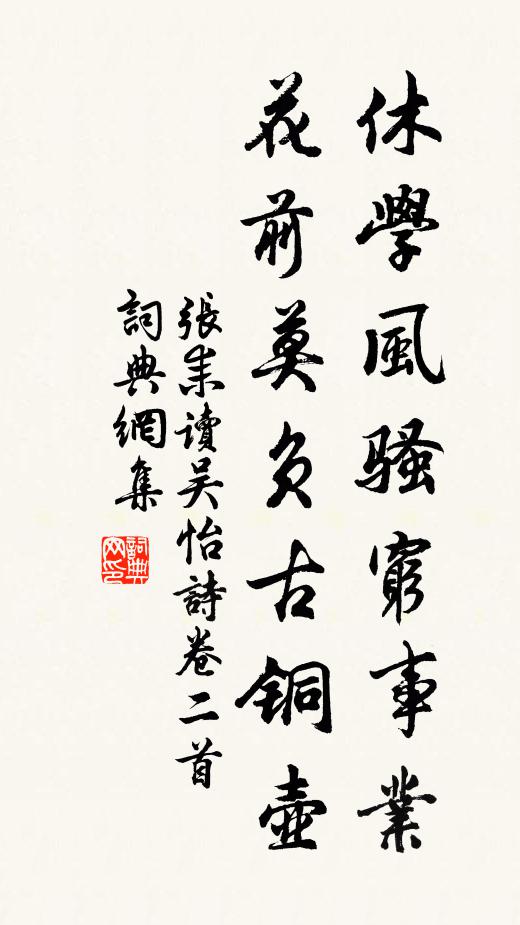 休學風騷窮事業
花前莫負古銅壺
張耒讀吴怡詩卷二首
詞典網集
詞典网印